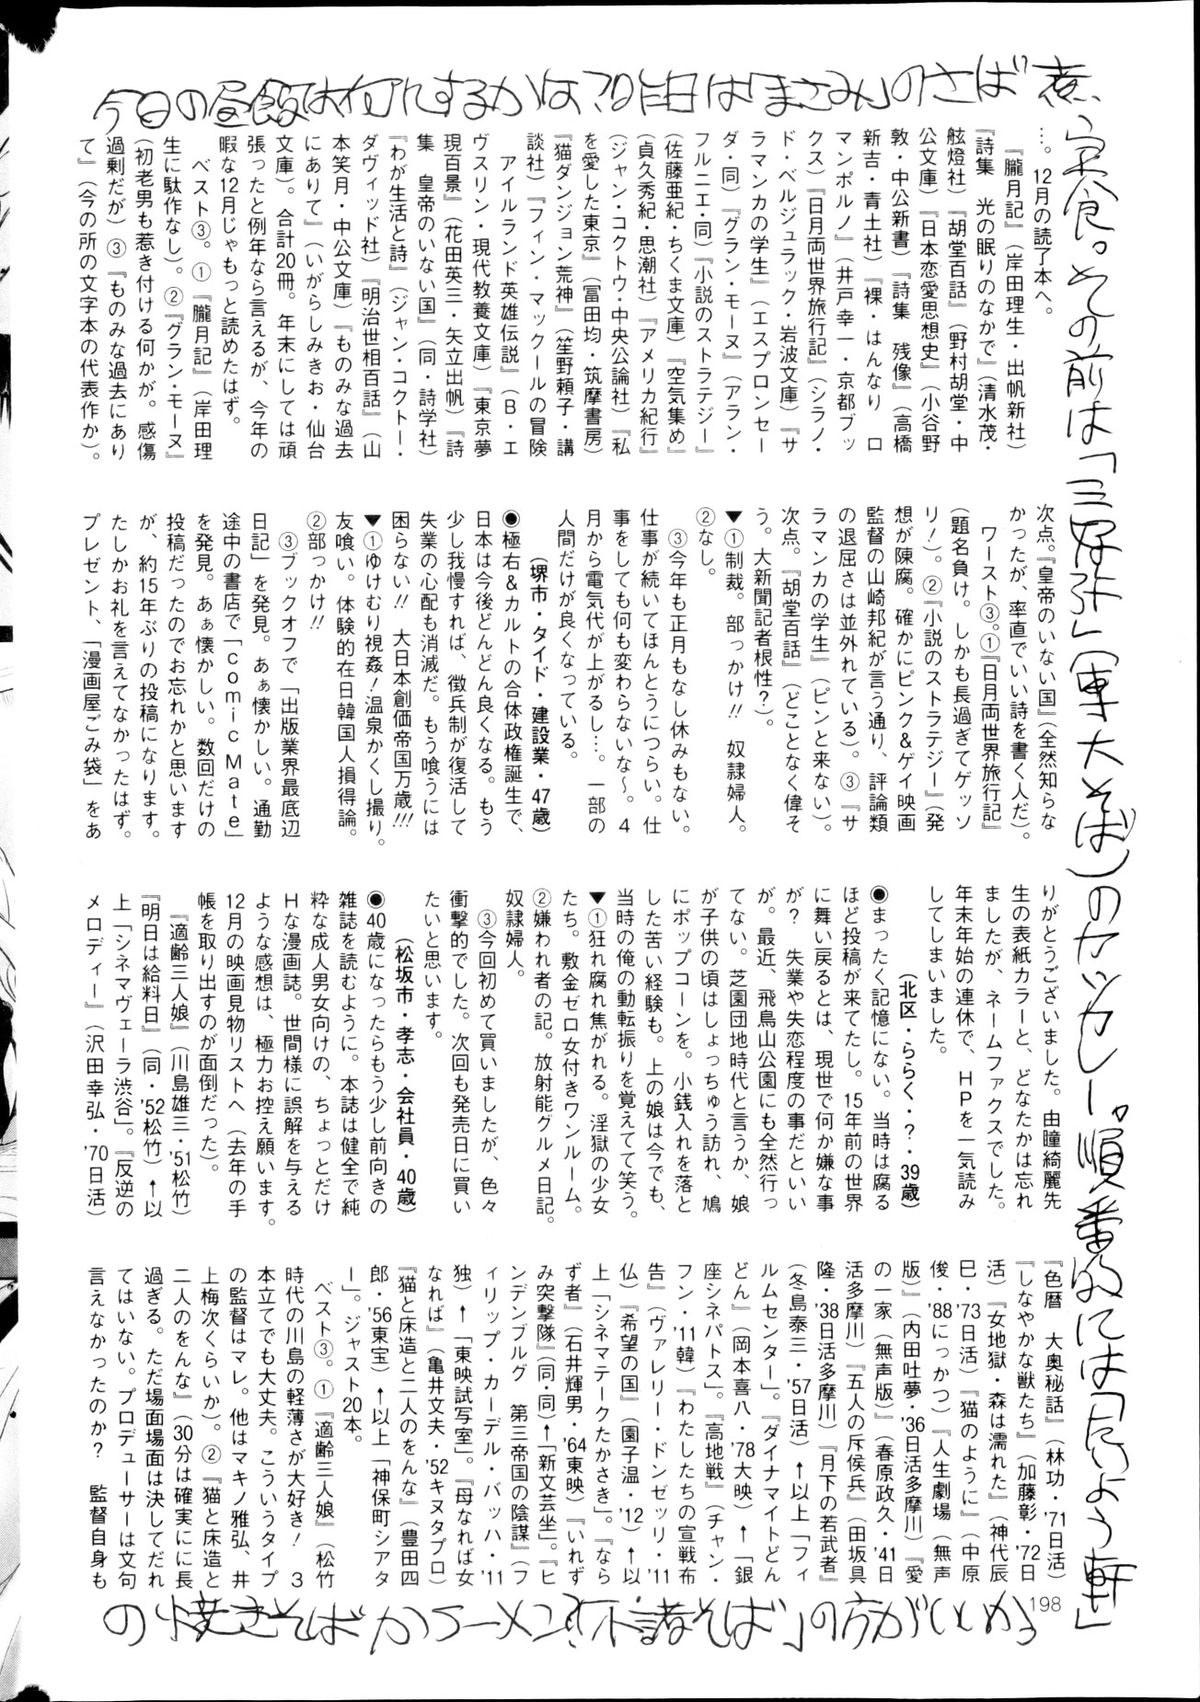 今日の昼飯は何にするかな?昨日は「まさみ」のさば煮
定食。その前は「三好弥」(東大そば)のカツカレー。順番的には「たいよう軒」
の焼きそばかラーメン?「不諸そば」の方がいいかる
…。12月の読了本へ。
『朧月記』(岸田理生・出帆新社)
『詩集 光の眠りのなかで』(清水茂・
舷燈社)『胡堂百話』(野村胡堂・中
公文庫)『日本恋愛思想史』(小谷野
敦・中公新書)『詩集 残像』(高橋
新吉・青土社)『裸・はんなり ロ
マンポルノ』(井戸幸一・京都ブッ
クス)『日月両世界旅行記』(シラノ・
ド・ベルジュラック・岩波文庫)『サ
ラマンカの学生』(エスプロンセー
ダ・同)『グラン・モーヌ』(アラン・
フルニエ・同)『小説のストラテジー』
(佐藤亜紀・ちくま文庫)『空気集め』
(貞久秀紀・思潮社)『アメリカ紀行』
(ジャン・コクトウ・中央公論社)『私
を愛した東京』(冨田均・筑摩書房)
『猫ダンジョン荒神』(笙野頼子・講
談社)『フィン・マックールの冒険
アイルランド英雄伝説』(B・エ
ヴスリン・現代教養文庫)『東京夢
現百景』(花田英三・矢立出帆)『詩
集 皇帝のいない国』(同・詩学社)
『わが生活と詩』(ジャン・コクトー・
ダヴィッド社)『明治世相百話』(山
本笑月・中公文庫)『ものみな過去
にありて』(いがらしみきお・仙台
文庫)。合計20冊。年末にしては頑
張ったと例年なら言えるが、今年の
暇な12月じゃもっと読めたはず。
ベスト③。①『朧月記』(岸田理
生に駄作なし)。②『グラン・モーヌ』
(初老男も惹き付ける何かが。感傷
過剰だが)③『ものみな過去にあり
て』(今の所の文字本の代表作か)。
次点。『皇帝のいない国』(全然知らな
かったが、率直でいい詩を書く人だ)。
ワースト③。①『日月両世界旅行記』
(題名負け。しかも長過ぎてゲッソ
リ!)。②『小説のストラテジー』(発
想が陳腐。確かにピンク&ゲイ映画
監督の山崎邦紀が言う通り、評論類
の退屈さは並外れている)。③『サ
ラマンカの学生』(ピンと来ない)。
次点。『胡堂百話』(どことなく偉そ
う。大新聞記者根性?)。
▼①制裁。部っかけ!! 奴隷婦人。
②なし。
③今年も正月もなし休みもない。
仕事が続いてほんとうにつらい。仕
事をしても何も変わらないな〜。4
月から電気代が上がるし…。一部の
人間だけが良くなっている。
(堺市・タイド・建設業・47歳)
●極右&カルトの合体政権誕生で、
日本は今後どんどん良くなる。もう
少し我慢すれば、徴兵制が復活して
失業の心配も消滅だ。もう喰うには
困らない!! 大日本創価帝国万歳!!!
▼①ゆけむり視姦!温泉かくし撮り。
友喰い。体験的在日韓国人損得論。
②部っかけ!!
③ブックオフで「出版業界最底辺
日記」を発見。あぁ懐かしい。通勤
途中の書店で「comic Mate」
を発見。あぁ懐かしい。数回だけの
投稿だったのでお忘れかと思います
が、約15年ぶりの投稿になります。
たしかお礼を言えてなかったはず。
プレゼント、「漫画屋ごみ袋」をあ
りがとうございました。由瞳綺麗先
生の表紙カラーと、どなたかは忘れ
ましたが、ネームファックスでした。
年末年始の連休で、HPを一気読み
してしまいました。
(北区・ららく・?・39歳)
●まったく記憶にない。当時は腐る
ほど投稿が来てたし。15年前の世界
に舞い戻るとは、現世で何か嫌な事
が? 失業や失恋程度の事だといい
が。最近、飛鳥山公園にも全然行っ
てない。芝園団地時代と言うか、娘
が子供の頃はしょっちゅう訪れ、鳩
にポップコーンを。小銭入れを落と
した苦い経験も。上の娘は今でも、
当時の俺の動転振りを覚えてて笑う。
▼①狂れ腐れ焦がれる。淫獄の少女
たち。敷金ゼロ女付きワンルーム。
②嫌われ者の記。放射能グルメ日記。
奴隷婦人。
③今回初めて買いましたが、色々
衝撃的でした。次回も発売日に買い
たいと思います。
(松坂市・孝志・会社員・40歳)
●40歳になったらもう少し前向きの
雑誌を読むように。本誌は健全で純
粋な成人男女向けの、ちょっとだけ
Hな漫画誌。世間様に誤解を与える
ような感想は、極力お控え願います。
12月の映画見物リストへ(去年の手
帳を取り出すのが面倒だった)。
『適齢三人娘』(川島雄三・'51松竹)
『明日は給料日』(同・'52松竹)↑以
上「シネマヴェーラ渋谷」。『反逆の
メロディー』(沢田幸弘・'70日活)
『色暦 大奥秘話』(林功・'71日活)
『しなやかな獣たち』(加藤彰・'72日
活)『女地獄・森は濡れた』(神代辰
巳・'73日活)『猫のように』(中原
俊・'88にっかつ)『人生劇場(無声
版)』(内田吐夢・'36日活多摩川)『愛
の一家(無声版)』(春原政久・'41日
活多摩川)『五人の斥候兵』(田坂具
隆・'38日活多摩川)『月下の若武者』
(冬島泰三・'57日活)↑以上「フィ
ルムセンター」。『ダイナマイトどん
どん』(岡本喜八・'78大映)↑「銀
座シネパトス」。『高地戦』(チャン・
フン・'11韓)『わたしたちの宣戦布
告』(ヴァレリー・ドンゼッリ・'11
仏)『希望の国』(園子温・'12)↑以
上「シネマテークたかさき」。『なら
ず者』(石井輝男・'64東映)『いれず
み突撃隊』(同・同)↑「新文芸坐」。『ヒ
ンデンブルグ 第三帝国の陰謀』(フ
ィリップ・カーデル・バッハ・'11
独)↑「東映試写室」。『母なれば女
なれば』(亀井文夫・'52キヌタプロ)
『猫と床造と二人のをんな』(豊田四
郎・'56東宝)↑以上「神保町シアタ
ー」。ジャスト20本。
ベスト③。①『適齢三人娘』(松竹
時代の川島の軽薄さが大好き! 3
本立てでも大丈夫。こういうタイプ
の監督はマレ。他はマキノ雅弘、井
上梅次くらいか)。②『猫と床造と
二人のをんな』(30分は確実にに長
過ぎる。ただ場面場面は決してだれ
てはいない。プロデューサーは文句
言えなかったのか? 監督自身も
198